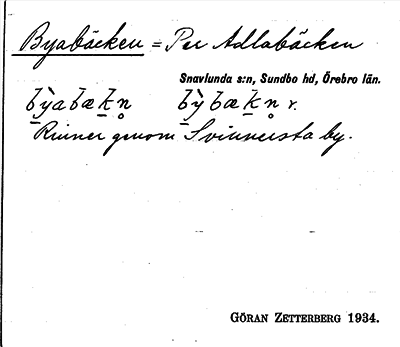 Byabäcken = Per Adlabäcken
Snavlunda s:n, Sundbo hd, Örebro län.
b̀yabækn bỳbækn r.
Rinner genom Svinnersta by.
GÖRAN ZETTERBERG 1934.